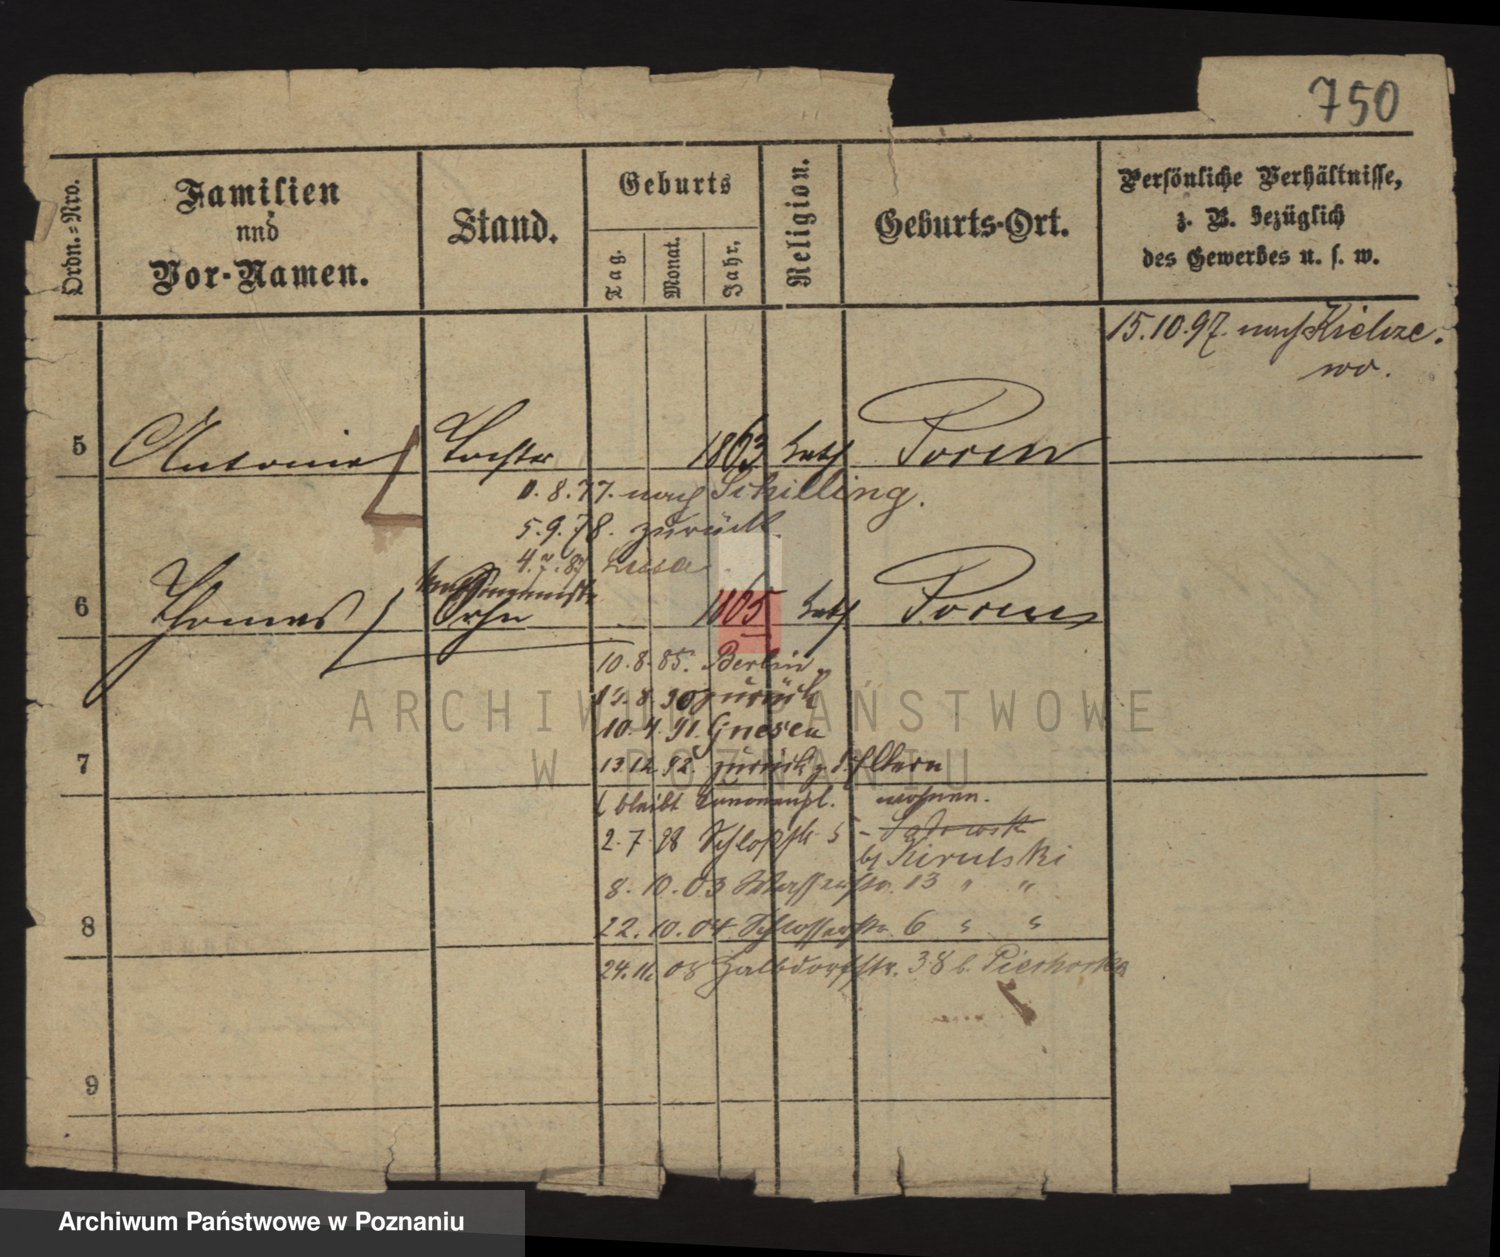 750
Ordn.=Nro.
Familien
und
Vor-Namen.
Stand.
Geburts
Tag.
Monat.
Jahr.
Religion.
Geburts-Ort.
Persönliche Verhältnisse,
z. B. bezüglich
des Gewerbes u. s. w.
15.10.97. nach Kichze-
wo.
5 Antonie Tochter 1863 kath Posen
8.77. nach Schilling.
5.9.78. zurück.
4.7.87
6 Thomas Sohn 1865 kath Posen
10.8.85. Berlin
8.90 zurück
10.4.91. Gnesen
7
13.12.92 zurück z. d. Eltern
bleibt wohnen.
2.7.98 Schloßstr 5 -
b/ Zirulski
8. 10. 03 Wasserstr. 13 " "
8
22. 10. 04 Schlosserstr. 6 " "
24. 08 Halbdorfstr. 38 b.
9
ARCHIWUM PAŃSTWOWE
W POZNANIU
Archiwum Państwowe w Poznaniu